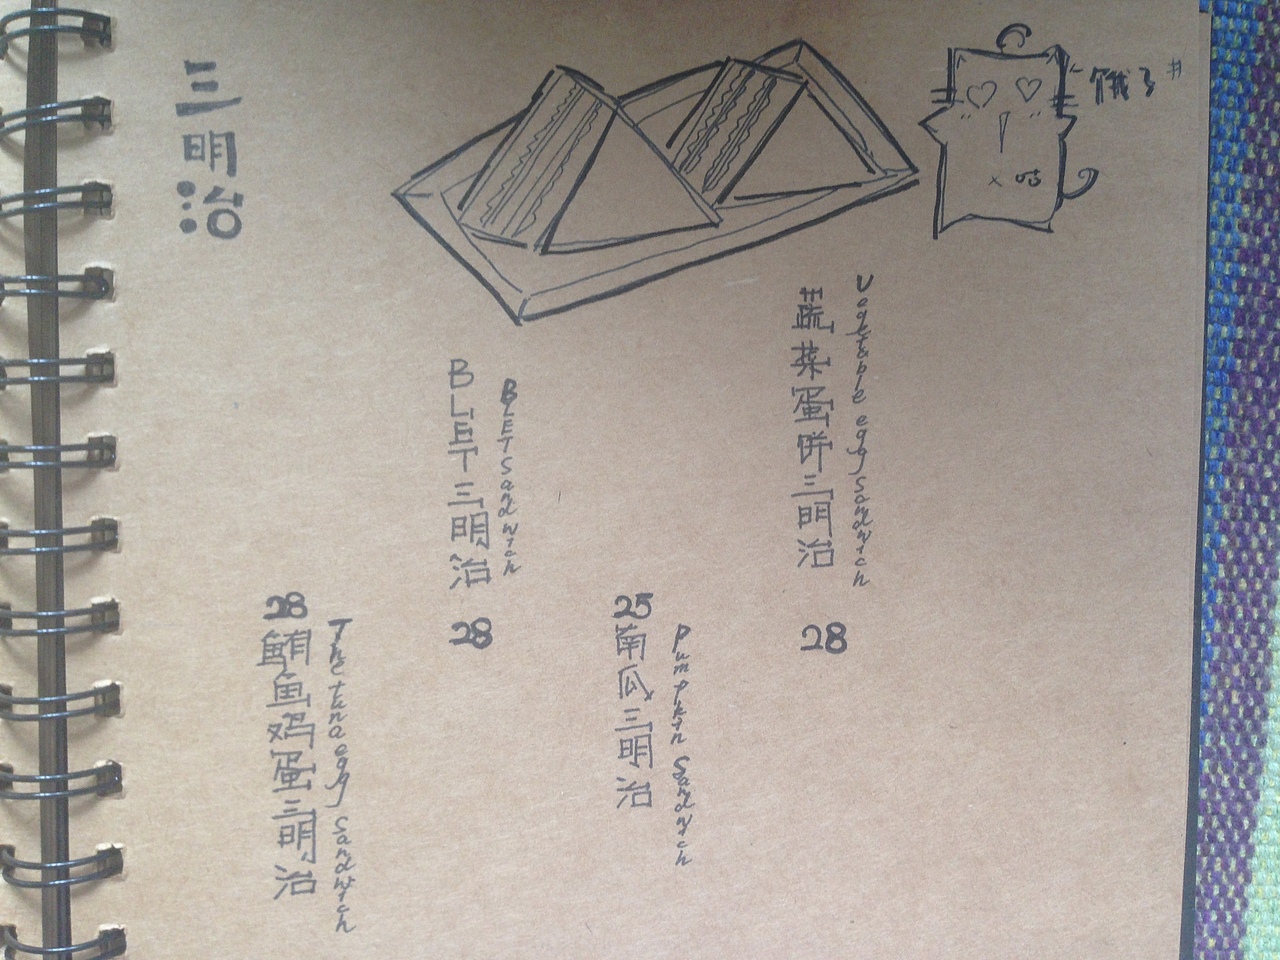 三明治
28
鲔鱼鸡蛋三明治
The tuna egg sandwich
BLET三明治
BLET sandwich
28
25
南瓜三明治
Pumpkin sandwich
蔬菜蛋饼三明治
Vegetable egg sandwich
28
饿了